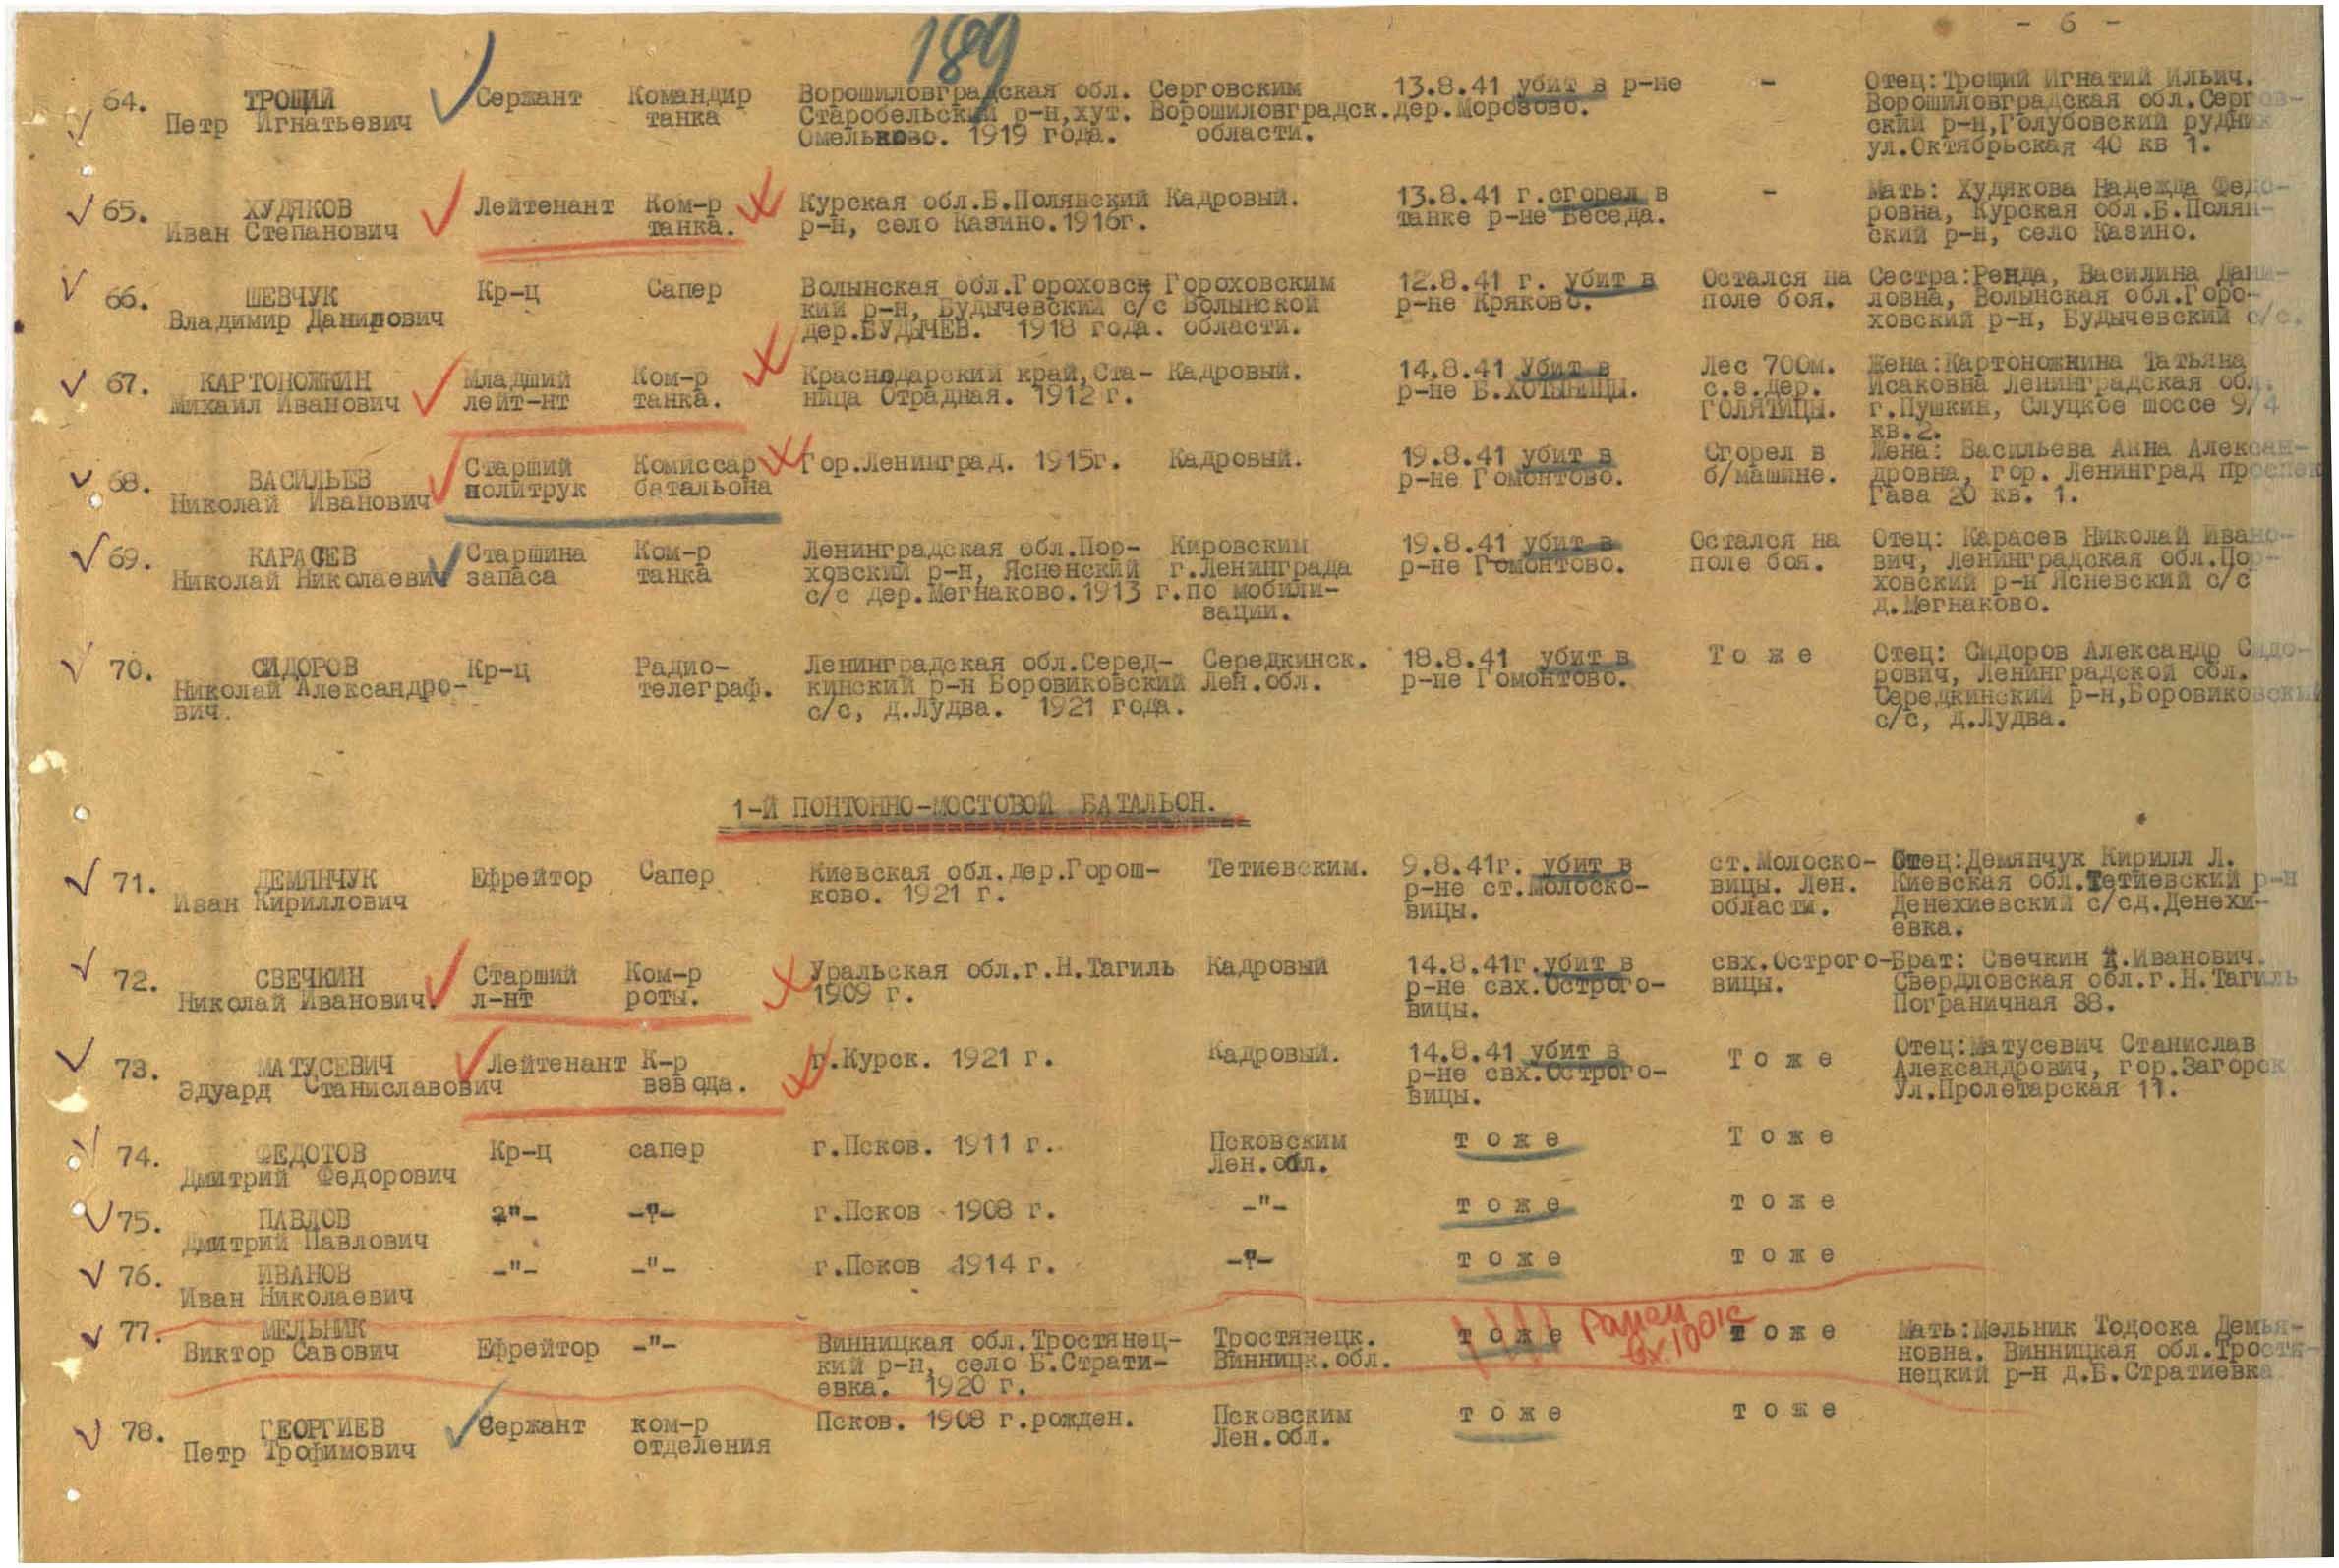 189
- 6 -
64. ТРОЩИЙ Сержант Командир Ворошиловградская обл. Серговским 13.8.41 убит в р-не - Отец:Трощий Игнатий Ильич.
Петр Игнатьевич танка Старобельский р-н,хут. Ворошиловградск. дер.Морозово. Ворошиловградская обл.Сергов-
Омельково. 1919 года. области. ский р-н,Голубовский рудник
ул.Октябрьская 40 кв 1.
65. ХУДЯКОВ Лейтенант Ком-р Курская обл.Б.Полянский Кадровый. 13.8.41 г.сгорел в - Мать: Худякова Надежда Федо-
Иван Степанович танка. р-н, село Казино.1916г. танке р-не Беседа. ровна, Курская обл.Б.Полян-
ский р-н, село Казино.
66. ШЕВЧУК Кр-ц Сапер Волынская обл.Гороховск Гороховским 12.8.41 г. убит в Остался на Сестра:Ренда, Василина Дани-
Владимир Данилович кий р-н, Будычевский с/с Волынской р-не Кряково. поле боя. ловна, Волынская обл.Горо-
дер.БУДЫЧЕВ. 1918 года. области. ховский р-н, Будычевский с/с.
67. КАРТОНОЖКИН Младший Ком-р Краснодарский край,Ста- Кадровый. 14.8.41 Убит в Лес 700м. Жена:Картоножкина Татьяна
Михаил Иванович лейт-нт танка. ница Отрадная. 1912 г. р-не Б.ХОТЫНИЦЫ. с.з.дер. Исаковна Ленинградская обл.
ГОЛЯТИЦЫ. г.Пушкин, Слуцкое шоссе 9/4
кв.2.
68. ВАСИЛЬЕВ Старший Комиссар Гор.Ленинград. 1915г. Кадровый. 19.8.41 убит в Сгорел в Жена: Васильева Анна Алексан-
Николай Иванович политрук батальона р-не Гомонтово. б/машине. дровна, гор. Ленинград проспек
Газа 20 кв. 1.
69. КАРАСЕВ Старшина Ком-р Ленинградская обл.Пор- Кировским 19.8.41 убит в Остался на Отец: Карасев Николай Ивано-
Николай Николаевич запаса танка ховский р-н, Ясненский г.Ленинграда р-не Гомонтово. поле боя. вич, Ленинградская обл.Пор-
с/с дер.Мегнаково.1913 г.по мобили- ховский р-н Ясневский с/с
зации. д.Мегнаково.
70. СИДОРОВ Кр-ц Радио- Ленинградская обл.Серед- Середкинск. 18.8.41 убит в Т о ж е Отец: Сидоров Александр Сидо-
Николай Александро- телеграф. кинский р-н Боровиковский Лен.обл. р-не Гомонтово. рович, Ленинградской обл.
вич. с/с, д.Лудва. 1921 года. Середкинский р-н,Боровиковский
с/с, д.Лудва.
1-Й ПОНТОННО-МОСТОВОЙ БАТАЛЬОН.
71. ДЕМЯНЧУК Ефрейтор Сапер Киевская обл.дер.Горош- Тетиевским. 9.8.41г. убит в ст.Молоско- Отец:Демянчук Кирилл Л.
Иван Кириллович ково. 1921 г. р-не ст.Молоско- вицы. Лен. Киевская обл.Тетиевский р-н
вицы. области. Денехиевский с/сд.Денехи-
евка.
72. СВЕЧКИН Старший Ком-р Уральская обл.г.Н.Тагиль Кадровый 14.8.41г.убит в свх.Острого- Брат: Свечкин .Иванович.
Николай Иванович. л-нт роты. 1909 г. р-не свх.Острого- вицы. Свердловская обл.г.Н.Тагиль
вицы. Пограничная 38.
73. МАТУСЕВИЧ Лейтенант К-р г.Курск. 1921 г. Кадровый. 14.8.41 убит в Т о ж е Отец:Матусевич Станислав
Эдуард Станиславович взвода. р-не свх.Острого- Александрович, гор.Загорск
вицы. Ул.Пролетарская 11.
74. ФЕДОТОВ Кр-ц сапер г.Псков. 1911 г. Псковским т о ж е Т о ж е
Дмитрий Федорович Лен.обл.
75. ПАВЛОВ -"- -"- г.Псков 1908 г. -"- т о ж е т о ж е
Дмитрий Павлович
76. ИВАНОВ -"- -"- г.Псков 1914 г. -"- т о ж е т о ж е
Иван Николаевич
77. МЕЛЬНИК Ефрейтор -"- Винницкая обл.Тростянец- Тростянецк. т о ж е Ранен т о ж е Мать:Мельник Тодоска Демья-
Виктор Савович кий р-н, село Б.Страти- Винницк.обл. вх.1001с новна. Винницкая обл.Тростя-
евка. 1920 г. нецкий р-н д.Б.Стратиевка
78. ГЕОРГИЕВ Сержант ком-р Псков. 1908 г.рожден. Псковским т о ж е т о ж е
Петр Трофимович отделения Лен.обл.